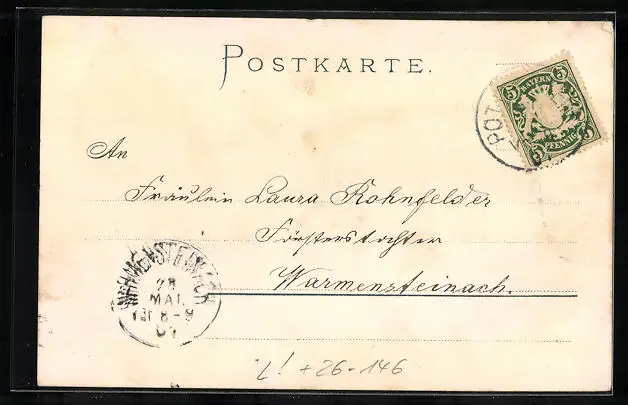 POSTKARTE.
5 BAYERN 5
5 PFENNIG 5
POT
An
Fräulein Laura Rohnfelder
Försterstochter
Warmensteinach.
WARMENSTEINACH
28
MAI.
8-9
+26-146